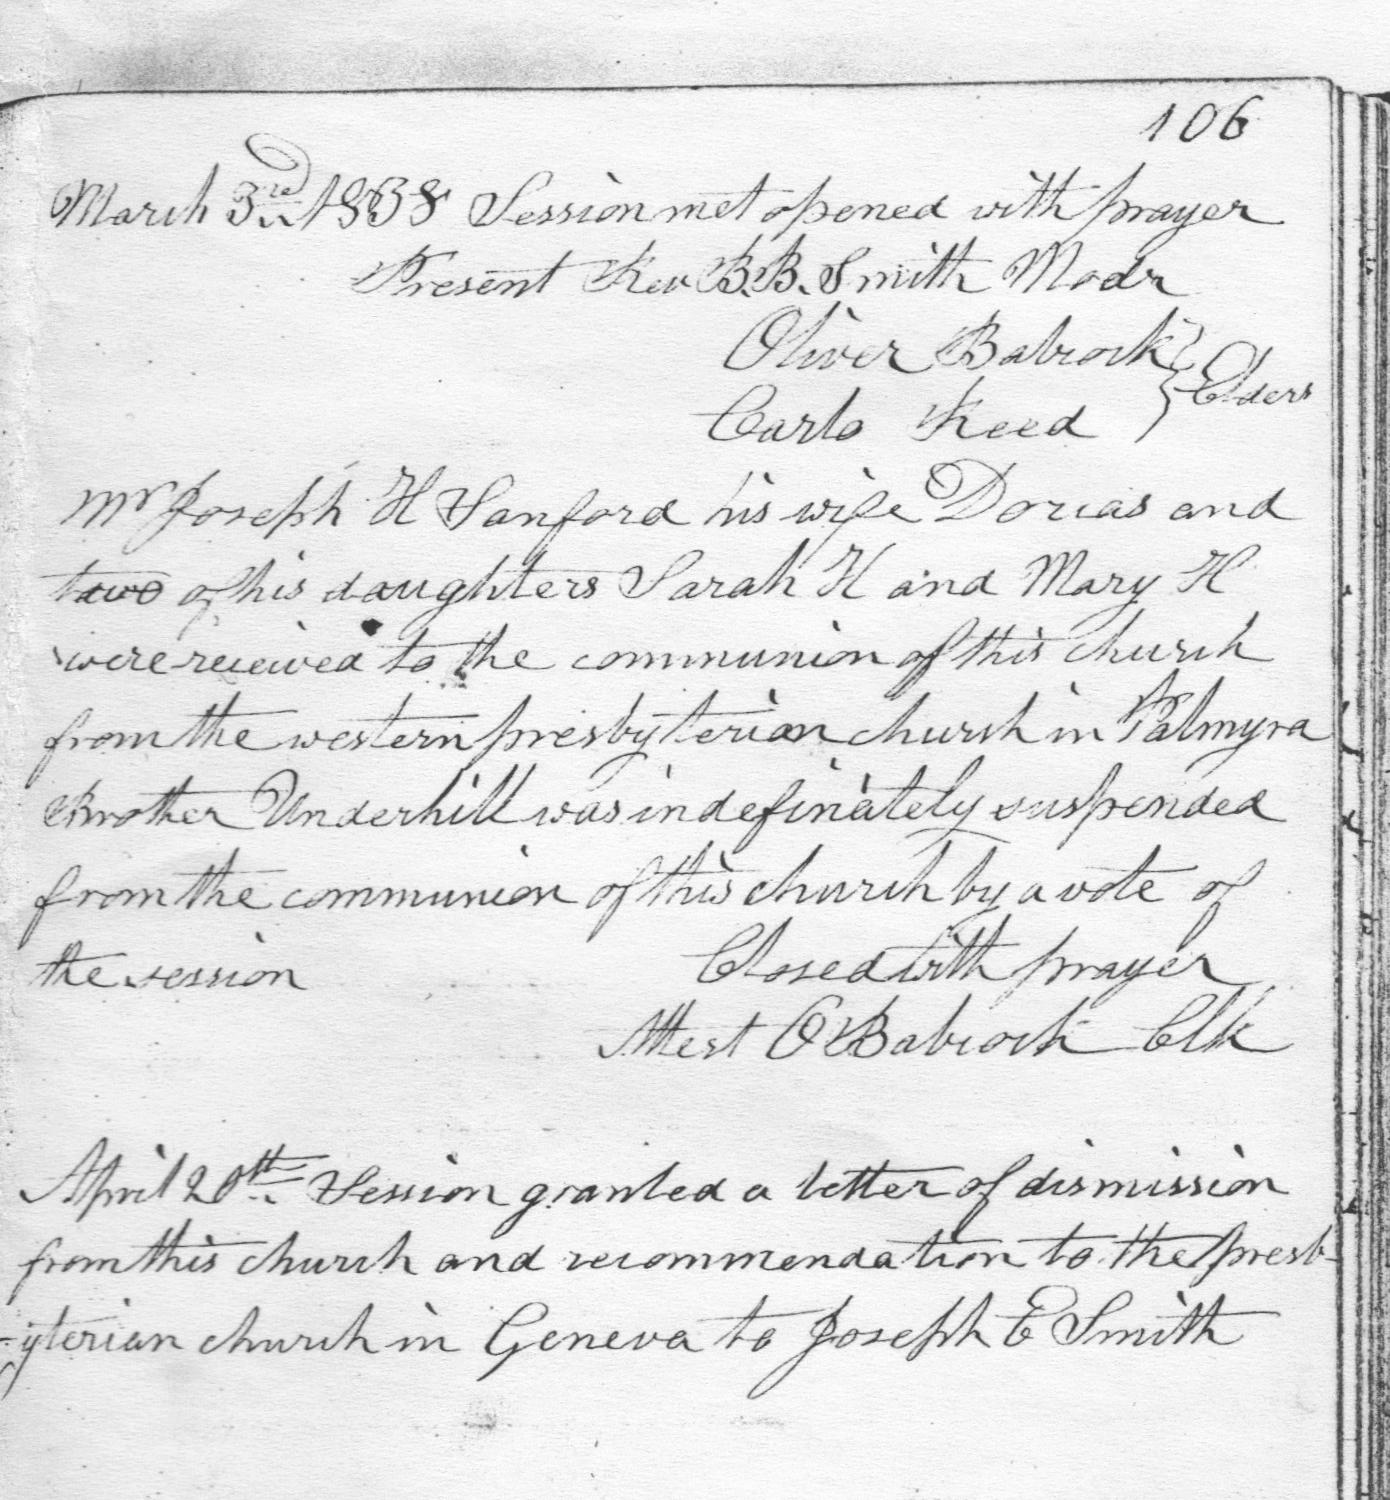 106
March 3rd 1838 Session met opened with prayer
Present Rev B.B. Smith Modr
Oliver Babcock
Carlo Reed } Elders
Mr Joseph H Sanford his wife Dorcas and
two of his daughters Sarah H and Mary H
were received to the communion of this church
from the western presbyterian church in Palmyra
Brother Underhill was indefinately suspended
from the communion of this church by a vote of
the session Closed with prayer
Attest O Babcock Clk
April 20th Session granted a letter of dismission
from this church and recommendation to the presb-
-yterian church in Geneva to Joseph E Smith